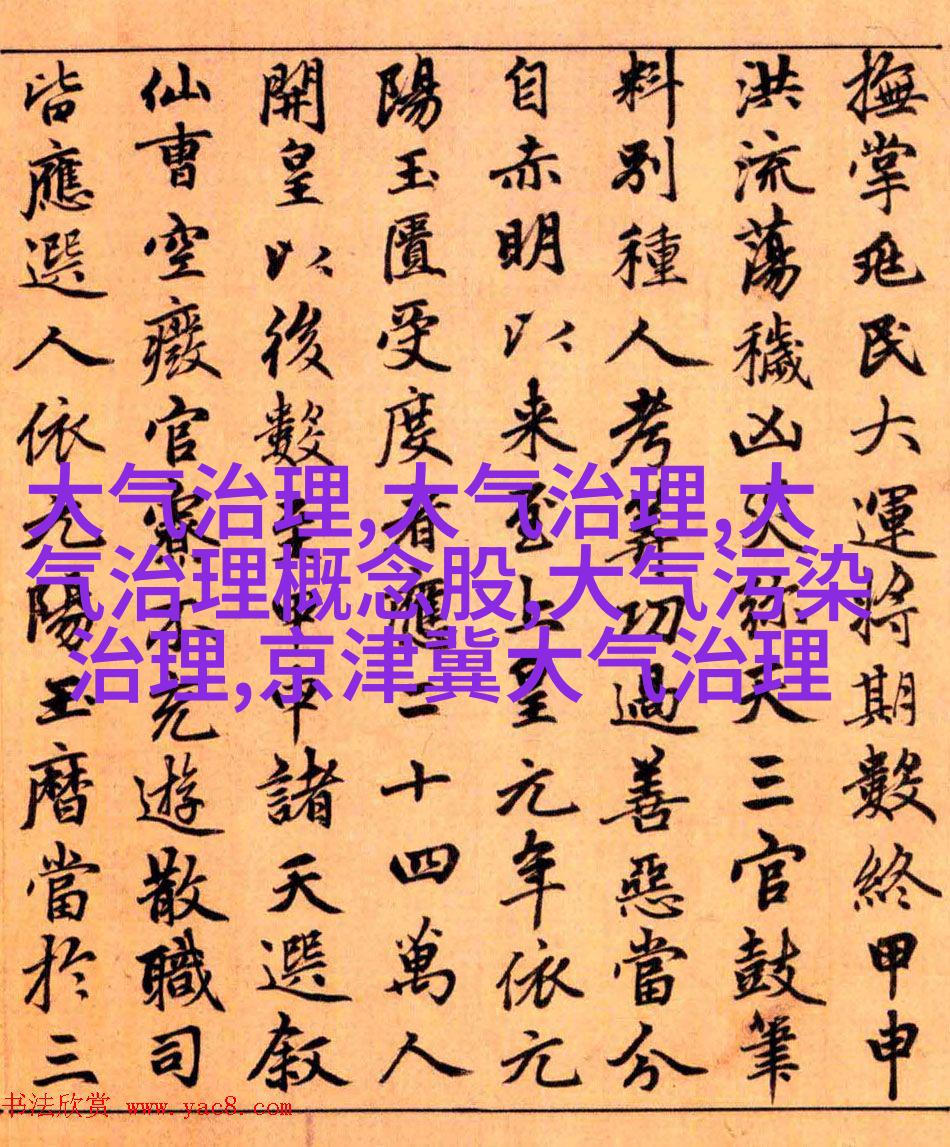 撫掌兆民大運將期數終甲申
洪流蕩穢凶災弥天三官鼓筆
料別種人考算功過善惡當分
自赤明以来至上皇元年依元
陽玉匱受度者應二十四萬人
開皇以後數年甲申諸天選叙
仙曹空廢官寮不充遊散職司
皆應選人依元陽玉曆當於三
大气治理,大气治理,大
气治理概念股,大气污染
治理,京津冀大气治理
书法欣赏 www.yac8.com